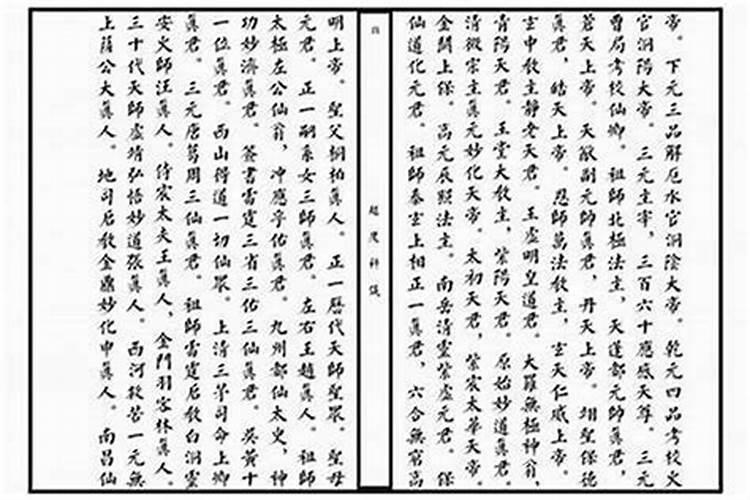 帝。下元三品解厄水官洞陰大帝。乾元四品考校火
官洞陽大帝。三元主宰，三百六十應感天尊。三元
曹局考校仙卿。祖師北極法主，天蓬都元帥真君，
蒼天上帝。天猷副元帥真君，丹天上帝。翊聖保德
真君，皓天上帝。恩師萬法教主，玄天仁威上帝。
玄中教主靜老天君。玉虛明皇道君。大羅無極神翁，
青陽天君。玉堂大教主，紫陽天君。原始妙道真君。
清微宗主真元妙化天帝。太初天君，紫宸太華天帝。
金闕上保。高元辰照法主。南岳清靈紫虛元君。保
仙道化元君。祖師泰玄上相正一真君，六合無窮高
超度科儀
明上帝。聖父桐柏真人。正一歷代天師聖眾。聖母
元君。正一嗣系女三師真君。左右王趙真人。祖師
太極左公仙翁，冲應孚佑真君。九州都仙太史，神
功妙濟真君。簽書雷霆三省三佑三仙真君。吳黃十
一位真君。西山得道一切仙眾。上清三茅司命上卿
真君。三元唐葛周三仙真君。祖師雷霆啟教白洞靈
安火師汪真人。侍宸太夫王真人，金門羽客林真人。
三十代天師虛靖弘悟妙道張真人。西河救苦一元無
上薩公大真人。地司啟教金鼎妙化申真人。南昌仙